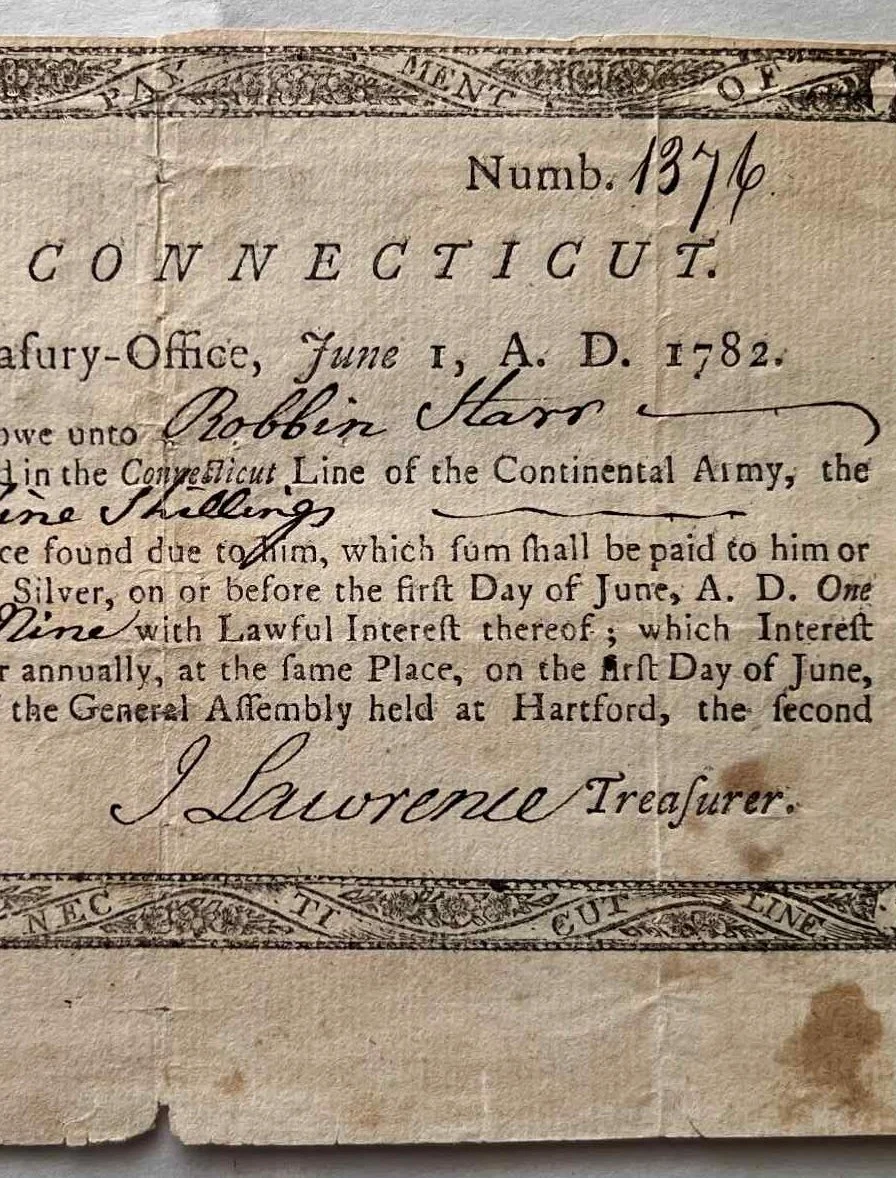 PAY MENT OF
Numb. 1376
CONNECTICUT.
aſury-Office, June 1, A. D. 1782.
owe unto Robbin Starr
d in the Connecticut Line of the Continental Army, the
ine Shillings
ce found due to him, which ſum ſhall be paid to him or
Silver, on or before the firſt Day of June, A. D. One
Nine with Lawful Intereſt thereof; which Intereſt
r annually, at the ſame Place, on the firſt Day of June,
f the General Aſſembly held at Hartford, the ſecond
J Lawrence Treaſurer.
NEC TI CUT LINE